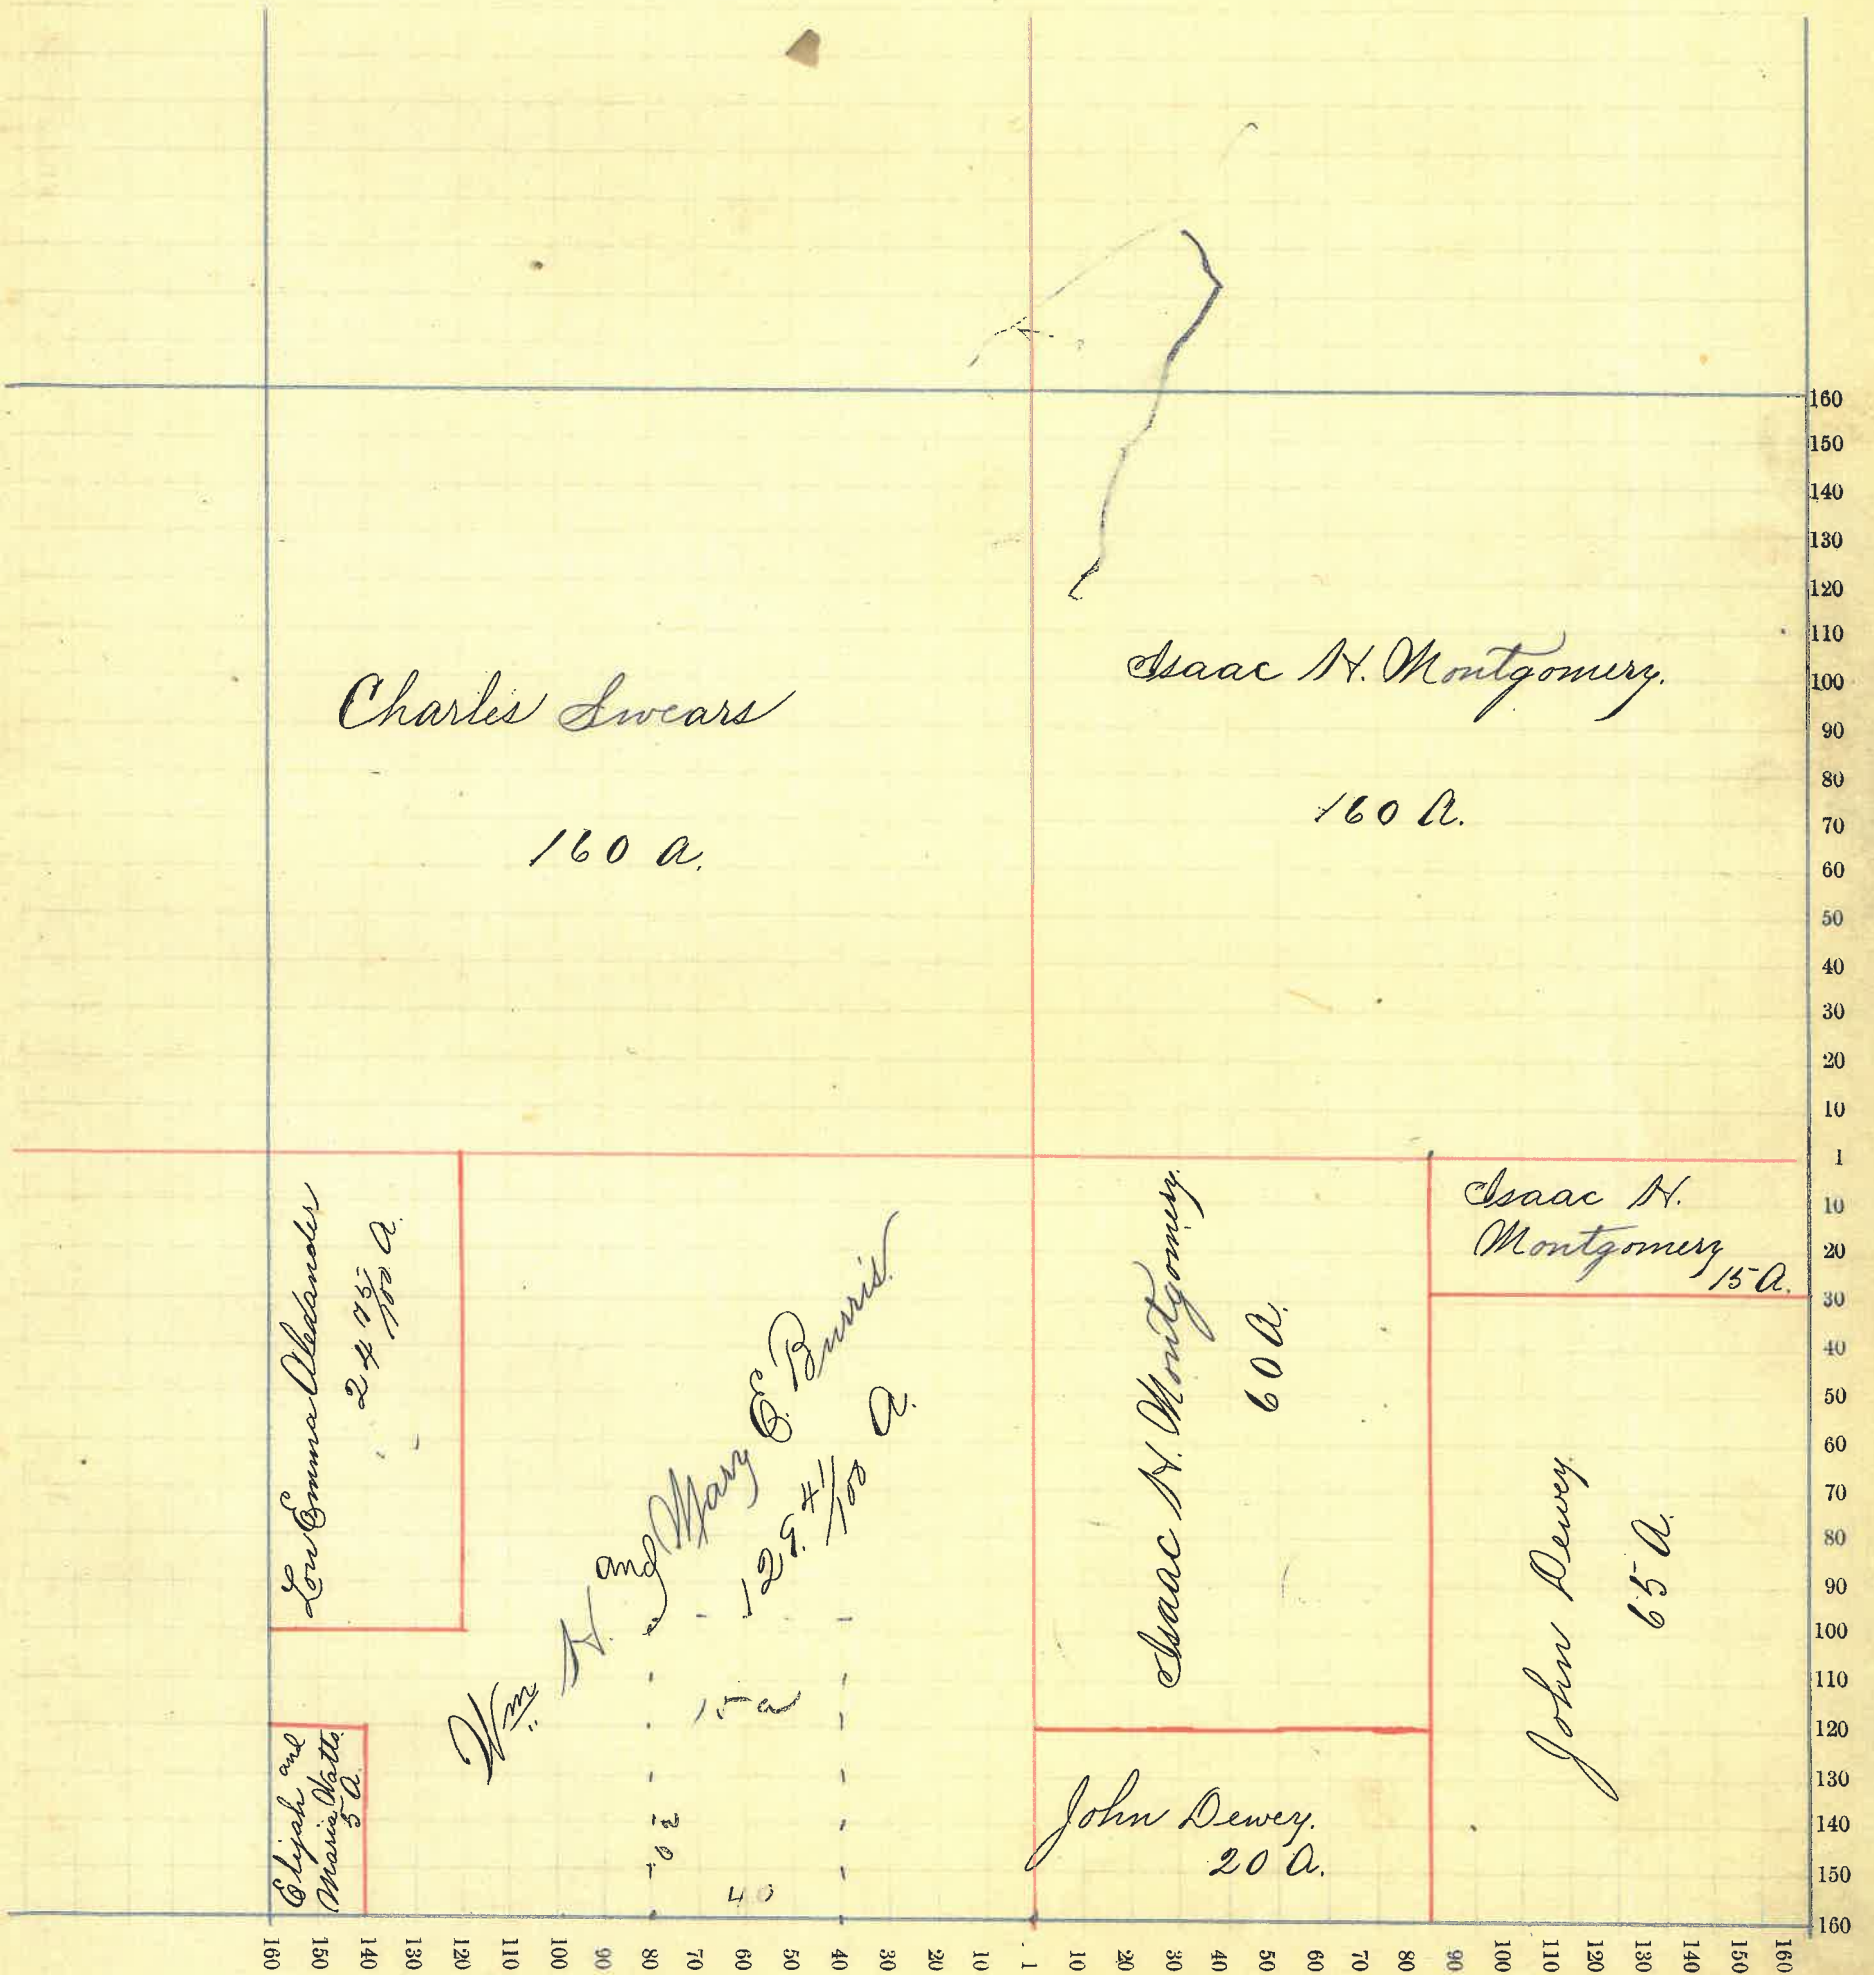 Charles Swears
160 A.
Isaac H. Montgomery.
160 A.
160
150
140
130
120
110
100
90
80
70
60
50
40
30
20
10
1
10
20
30
40
50
60
70
80
90
100
110
120
130
140
150
160
Lou Emma Alexander
24 75/100 A.
Elijah and
Maria Watts.
5 A.
Wm H. and Mary E. Burris.
129.41/100 A.
15 a
40
Isaac H. Montgomery.
60 A.
John Dewey.
20 A.
Isaac H.
Montgomery
15 A.
John Dewey
65 A.
160 150 140 130 120 110 100 90 80 70 60 50 40 30 20 10 1 10 20 30 40 50 60 70 80 90 100 110 120 130 140 150 160